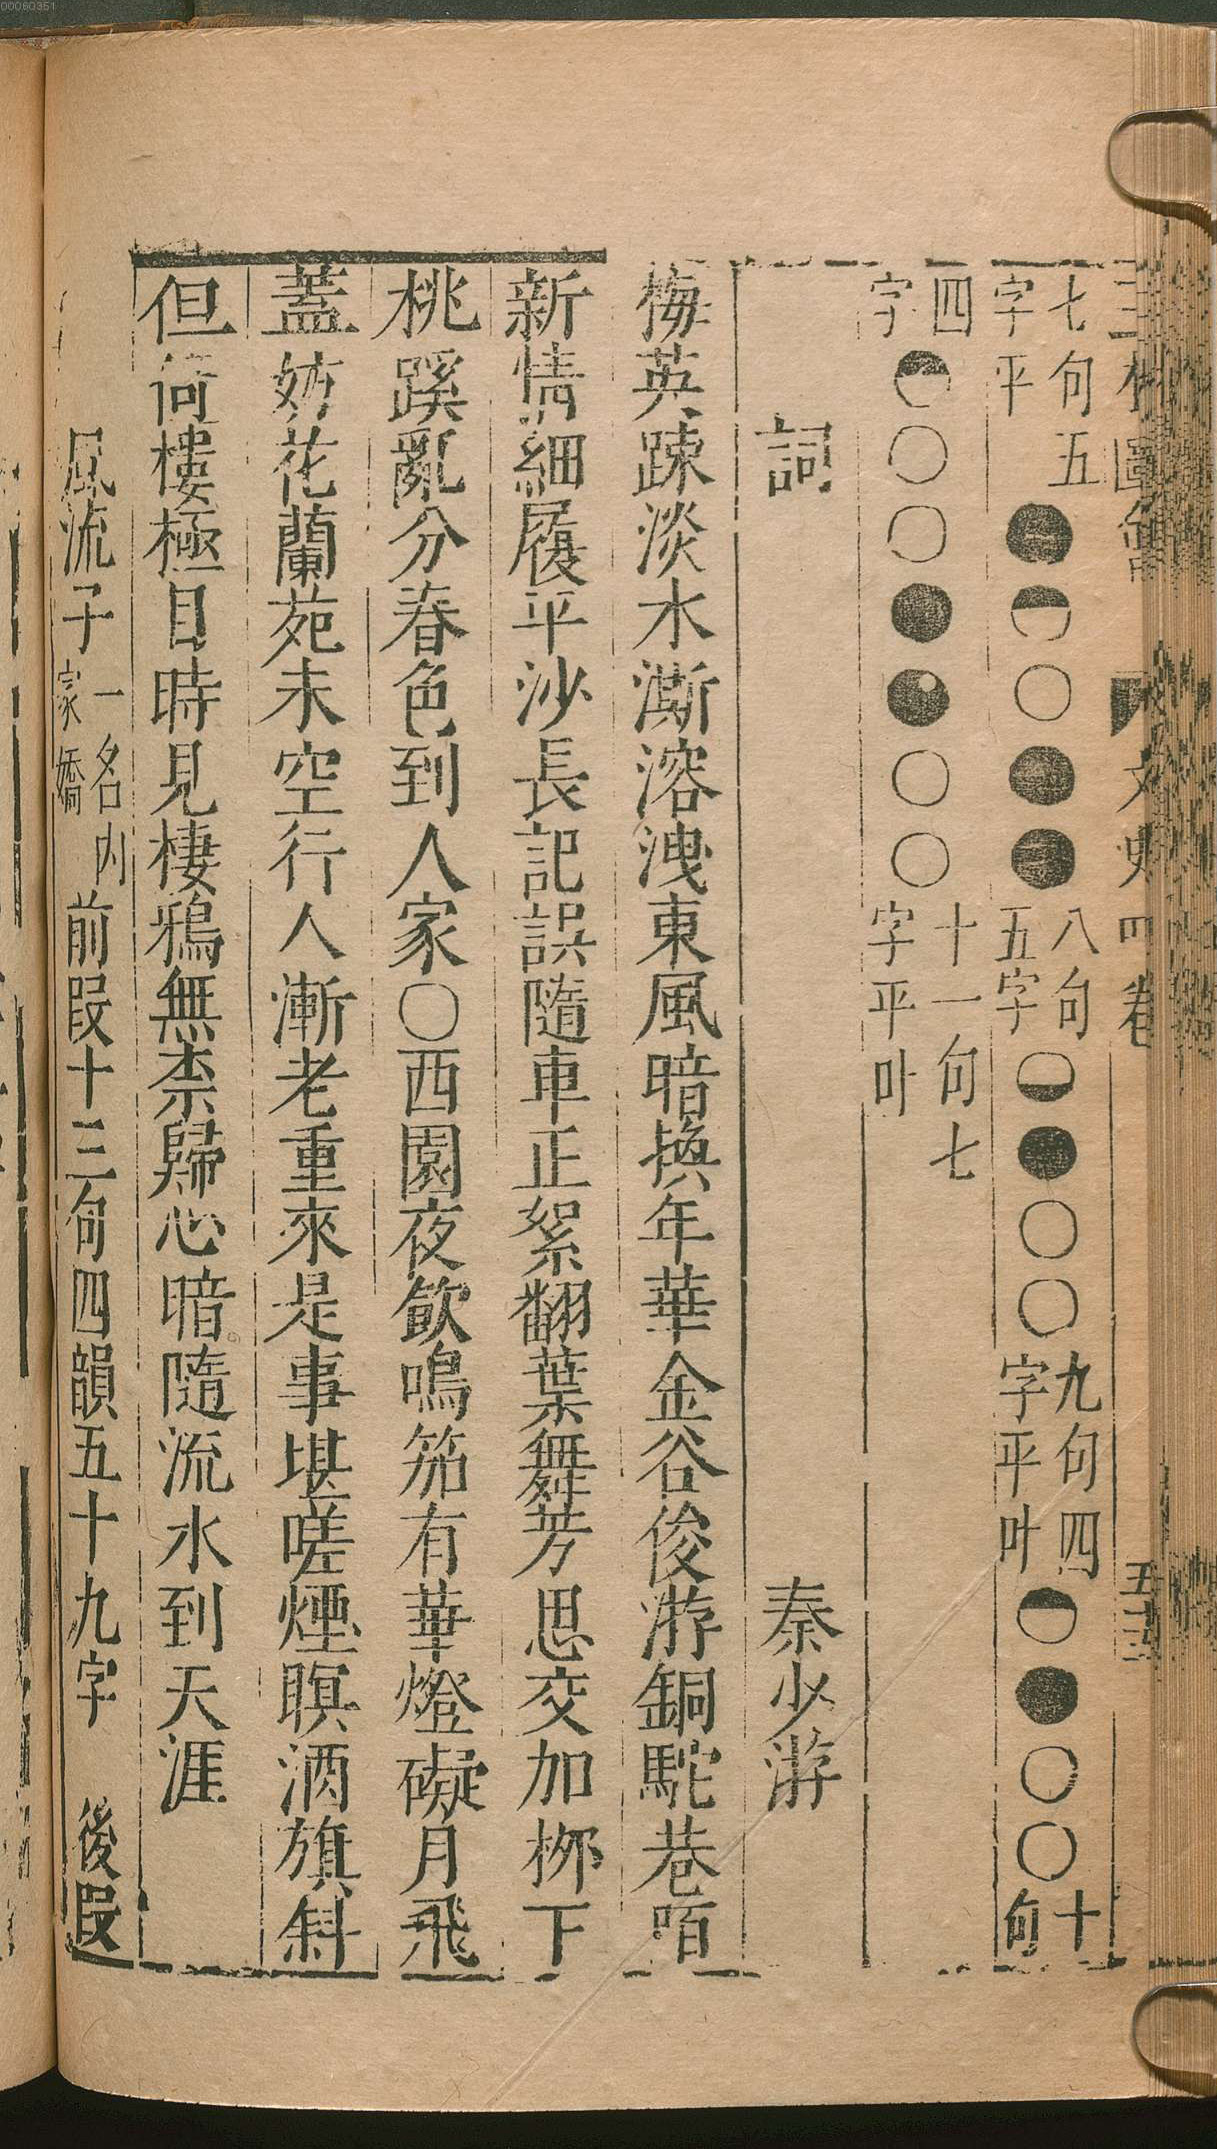 00060351
三才圖會 文史四卷 五三
七句五字平●◓○●●八句五字◒●○○九句四字平叶◓●○○十句
四字◓○○●●○○十一句七字平叶
詞 秦少游
梅英踈淡水澌溶洩東風暗換年華金谷俊游銅駝巷陌
新情細履平沙長記誤隨車正絮翻蝶舞芳思交加桺下
桃蹊亂分春色到人家○西園夜飲鳴笳有華燈礙月飛
蓋妨花蘭苑未空行人漸老重來是事堪嗟煙暝酒旗斜
但倚樓極目時見棲鴉無柰歸心暗隨流水到天涯
風流子一名內家嬌 前段十三句四韻五十九字 後段